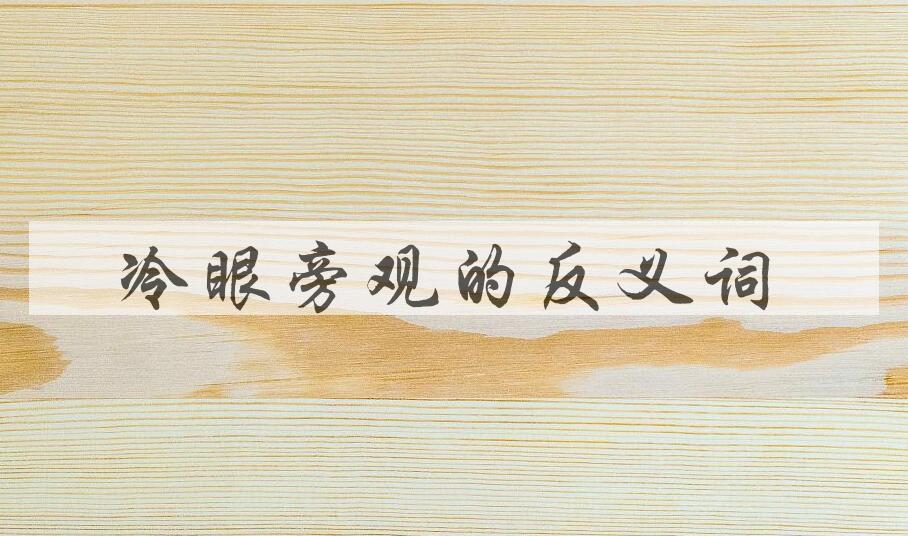 冷眼旁观的反义词